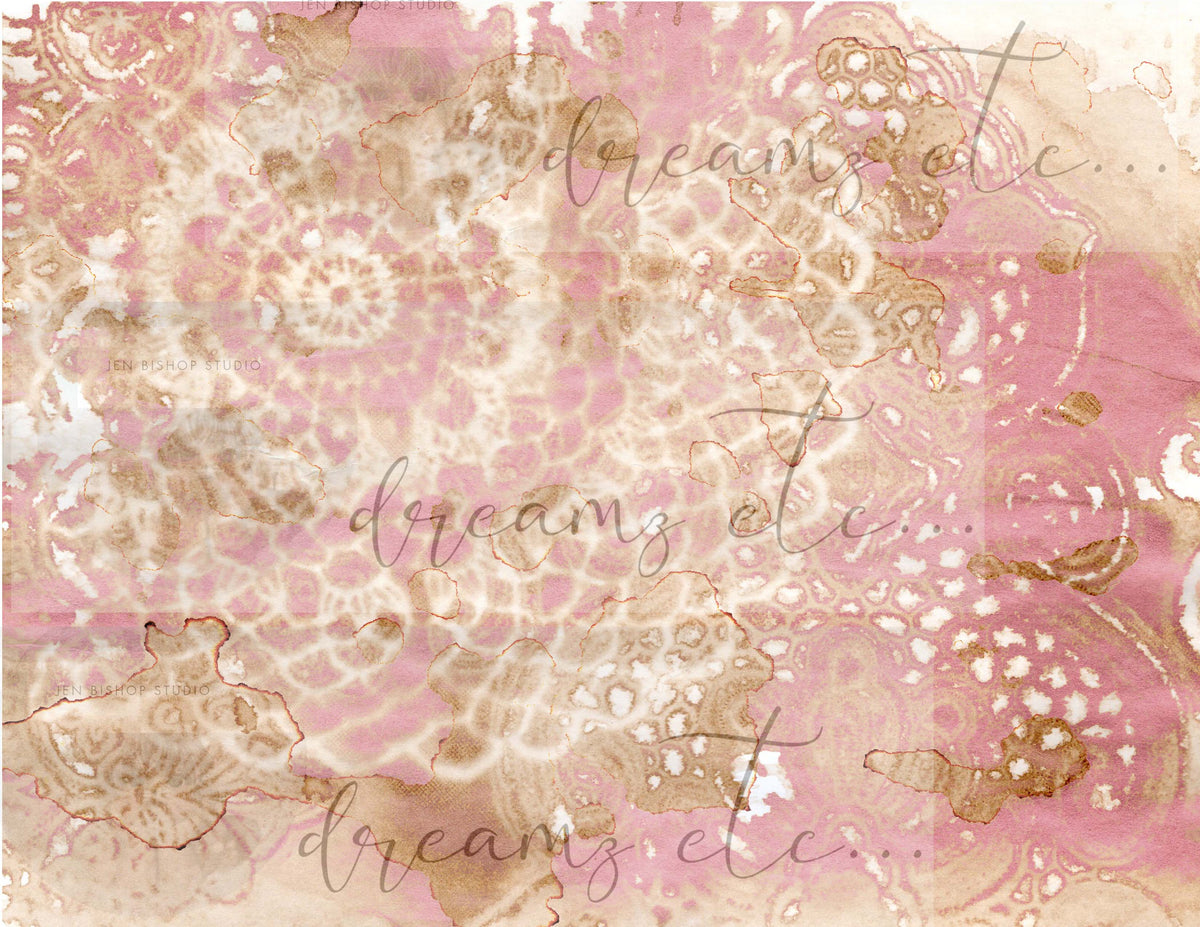 JEN BISHOP STUDIO
dreamz etc...
JEN BISHOP STUDIO
dreamz etc...
JEN BISHOP STUDIO
dreamz etc...